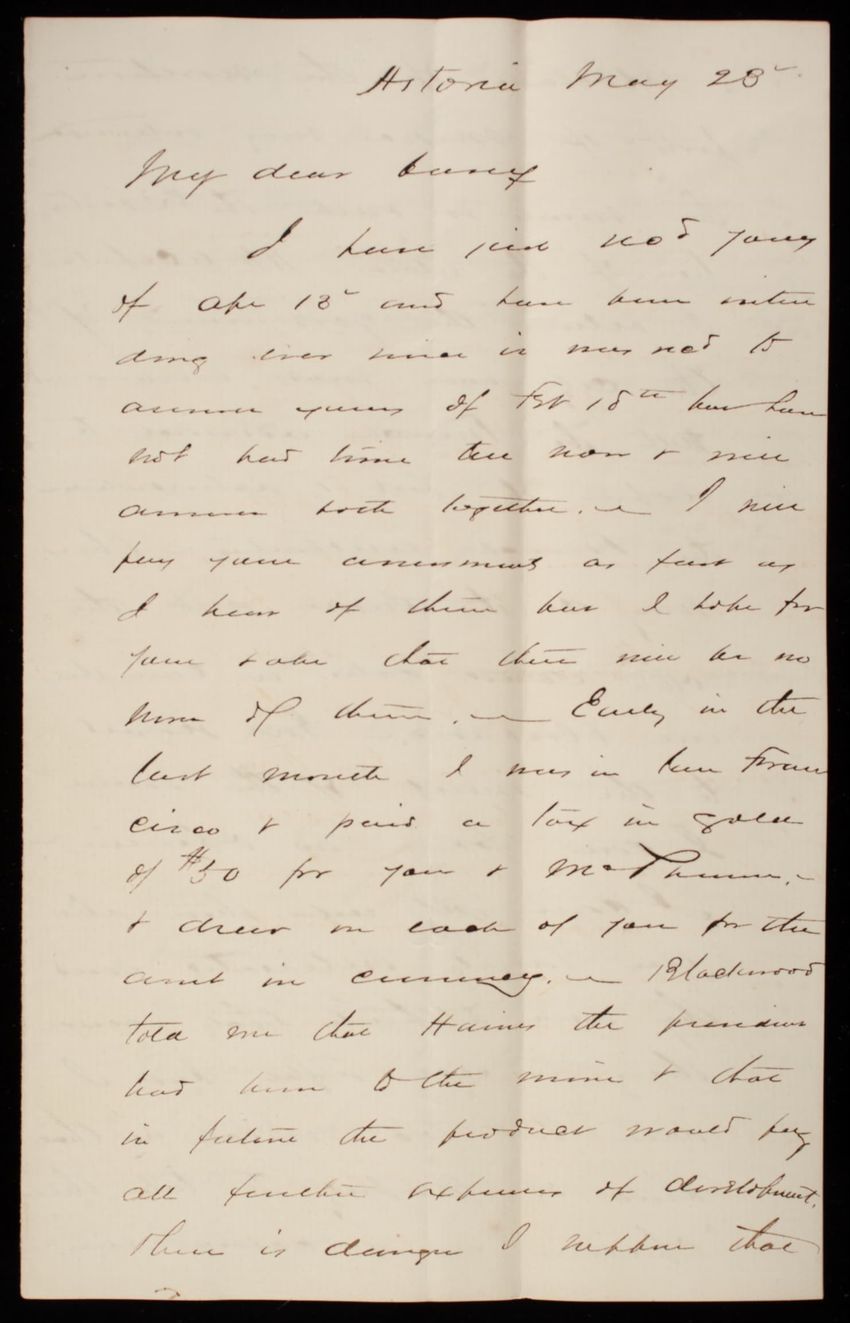 Astoria May 28
My dear Casey
I have just rec'd yours
of Apr 18 and have been inten
ding ever since it was rec'd to
answer yours of Feb 18th but have
not had time till now & will
answer both together. — I will
pay your assessments as fast as
I hear of them but I hope for
your sake that there will be no
more of them. — Early in the
last month I was in San Fran
cisco & paid a tax in gold
of $50 for you &
& drew on each of you for the
amt in currency. — Blackwood
told me that Haines the president
had been to the mine & that
in future the product would pay
all further expenses of development.
There is danger I suppose that